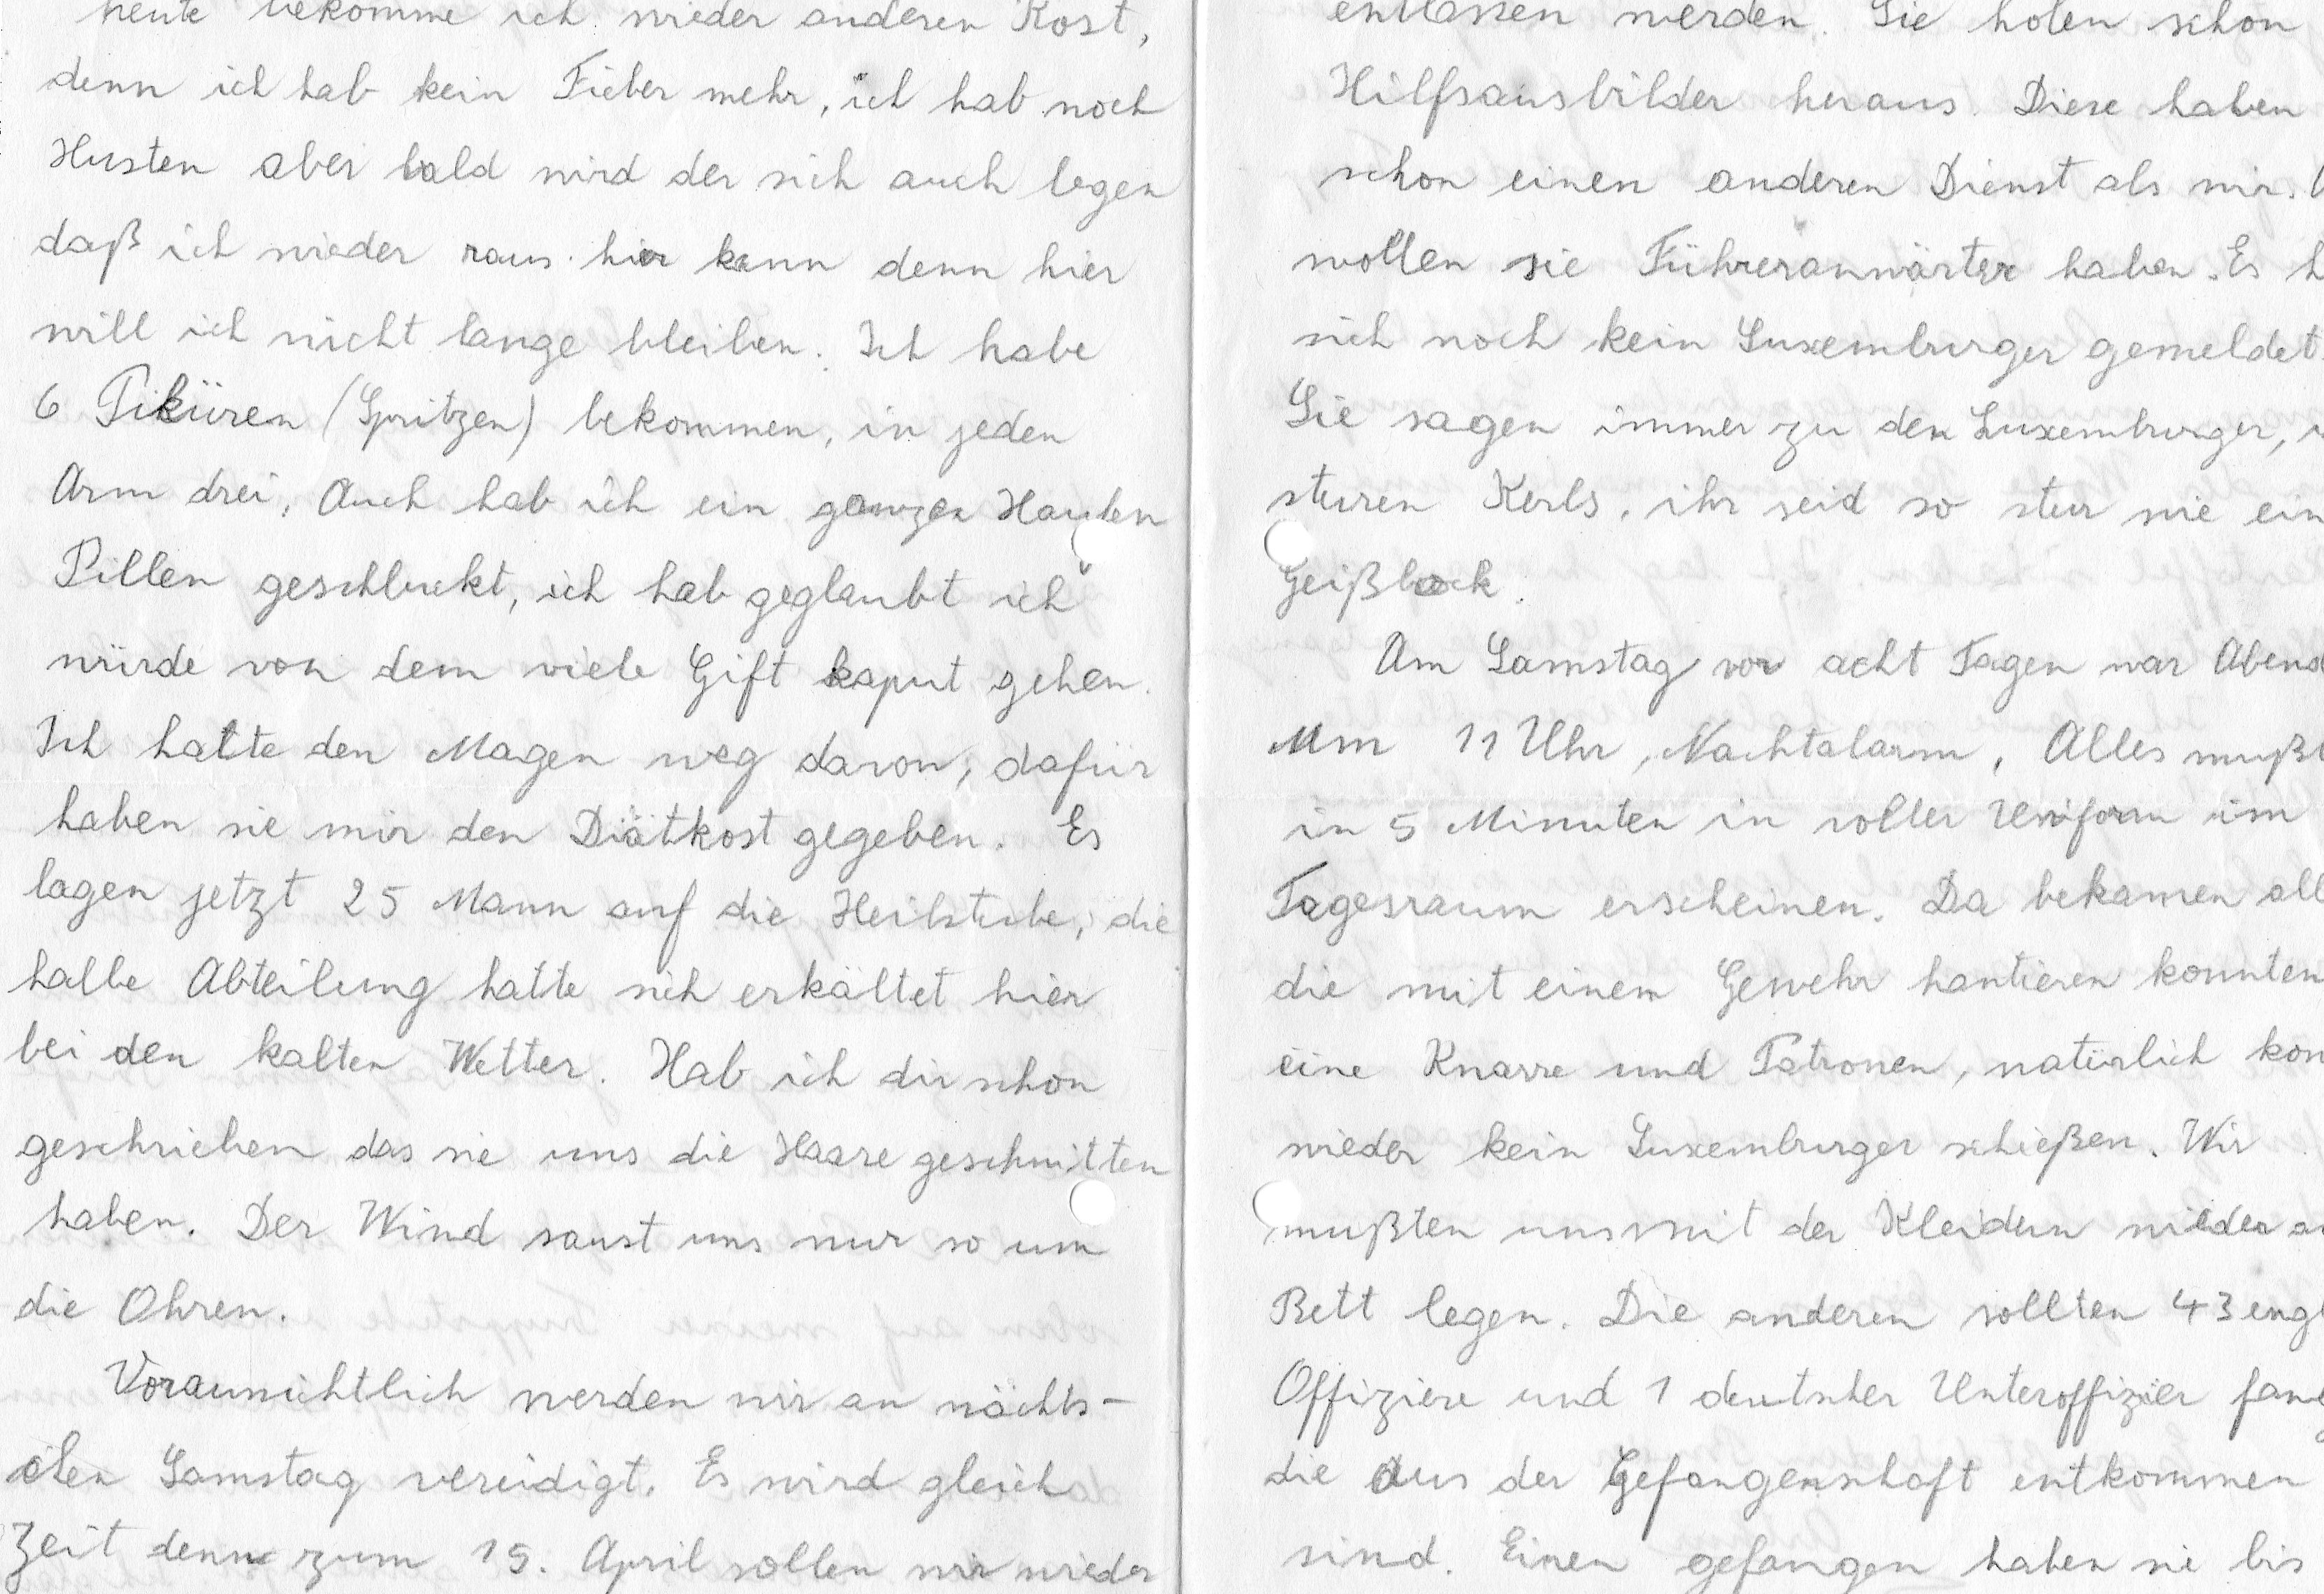 heute bekomme ich wieder anderen Kost,
denn ich hab kein Fieber mehr, ich hab noch
Husten aber bald wird der sich auch legen
daß ich wieder raus hier kann denn hier
will ich nicht lange bleiben. Ich habe
6 Piküren (Spritzen) bekommen, in jeden
Arm drei, Auch hab ich ein ganzen Haufen
Pillen geschluckt, ich hab geglaubt ich
würde von dem viele Gift kaput gehen.
Ich hatte den Magen weg davon, dafür
haben sie mir den Diätkost gegeben. Es
lagen jetzt 25 Mann auf die Heilstube, die
halbe Abteilung hatte sich erkältet hier
bei den kalten Wetter. Hab ich dir schon
geschrieben das sie uns die Haare geschnitten
haben. Der Wind saust uns nur so um
die Ohren.
Voraussichtlich werden wir an nächts-
chen Samstag vereidigt. Es wird gleich
Zeit denn zum 15. April sollen wir wieder
entlassen werden. Sie holen schon
Hilfsausbilder heraus. Diese haben
schon einen anderen Dienst als wir.
wollen sie Führeranwärter haben. Es
sich noch kein Luxemburger gemeldet
Sie sagen immer zu den Luxemburger,
sturen Kerls, ihr seid so stur wie ein
Geißbock.
Am Samstag vor acht Tagen war Abend
Um 11 Uhr, Nachtalarm, Alles mußt
in 5 Minuten in voller Uniform im
Tagesraum erscheinen. Da bekamen all
die mit einem Gewehr hantieren konnten
eine Knarre und Patronen, natürlich kon
wieder kein Luxemburger schießen. Wir
mußten uns mit der Kleidern wieder
Bett legen. Die anderen sollten 43 engl
Offiziere und 1 deutscher Unteroffizier fang
die aus der Gefangenschaft entkommen
sind. Einen gefangen haben sie bis